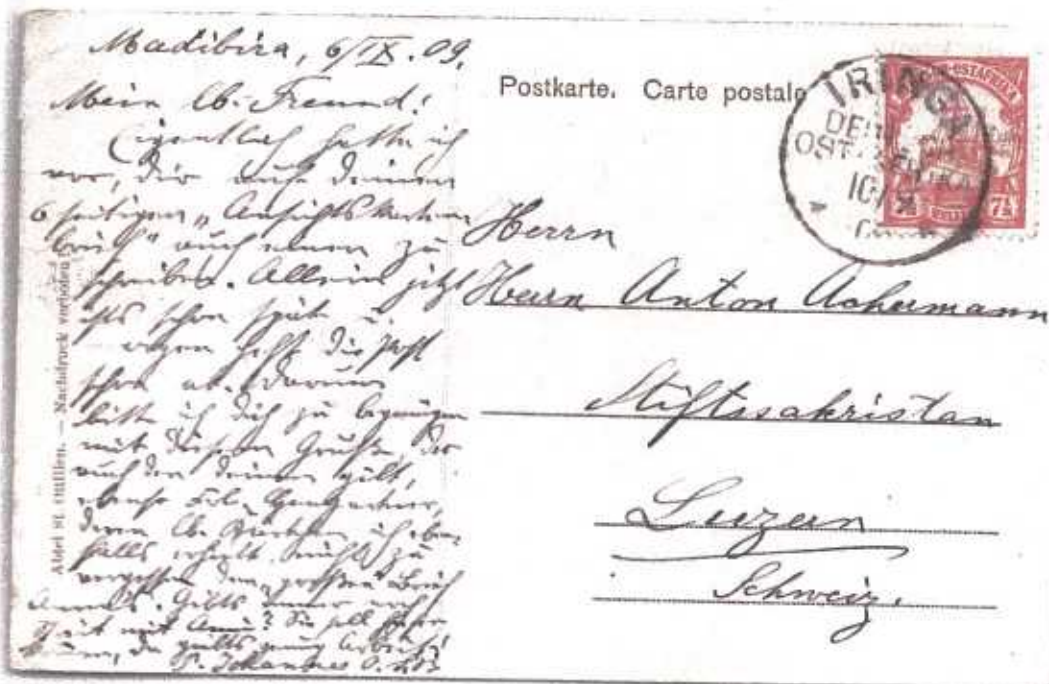 Madibira, 6/IX.09.
Mein lb. Freund!
Eigentlich hatte ich
vor, dir auf deinen
6 seitigen „Ansichtskarten
brief" auch einen zu
schreiben. Allein jetzt
ists schon spät u.
morgen geht die Post
schon ab. Darum
bitte ich dich zu begnügen
mit diesem Gruße, der
auch den deinen gilt,
ebenso Frl.
deren lb. ich eben-
falls erhielt, nicht zu
vergessen den „großen" Brief
Anni's. Gilts immer noch
mit Anni? Sie soll
da gibts genug Arbeit!
P. Johannes O.S.B.
Abtei St. Ottilien. — Nachdruck verboten!
Postkarte. Carte postale
IRINGA
DEUTSCH
OSTAFRIKA
10/
7½
Herrn
Herrn Anton Achermann
Stiftssakristan
Luzern
Schweiz.